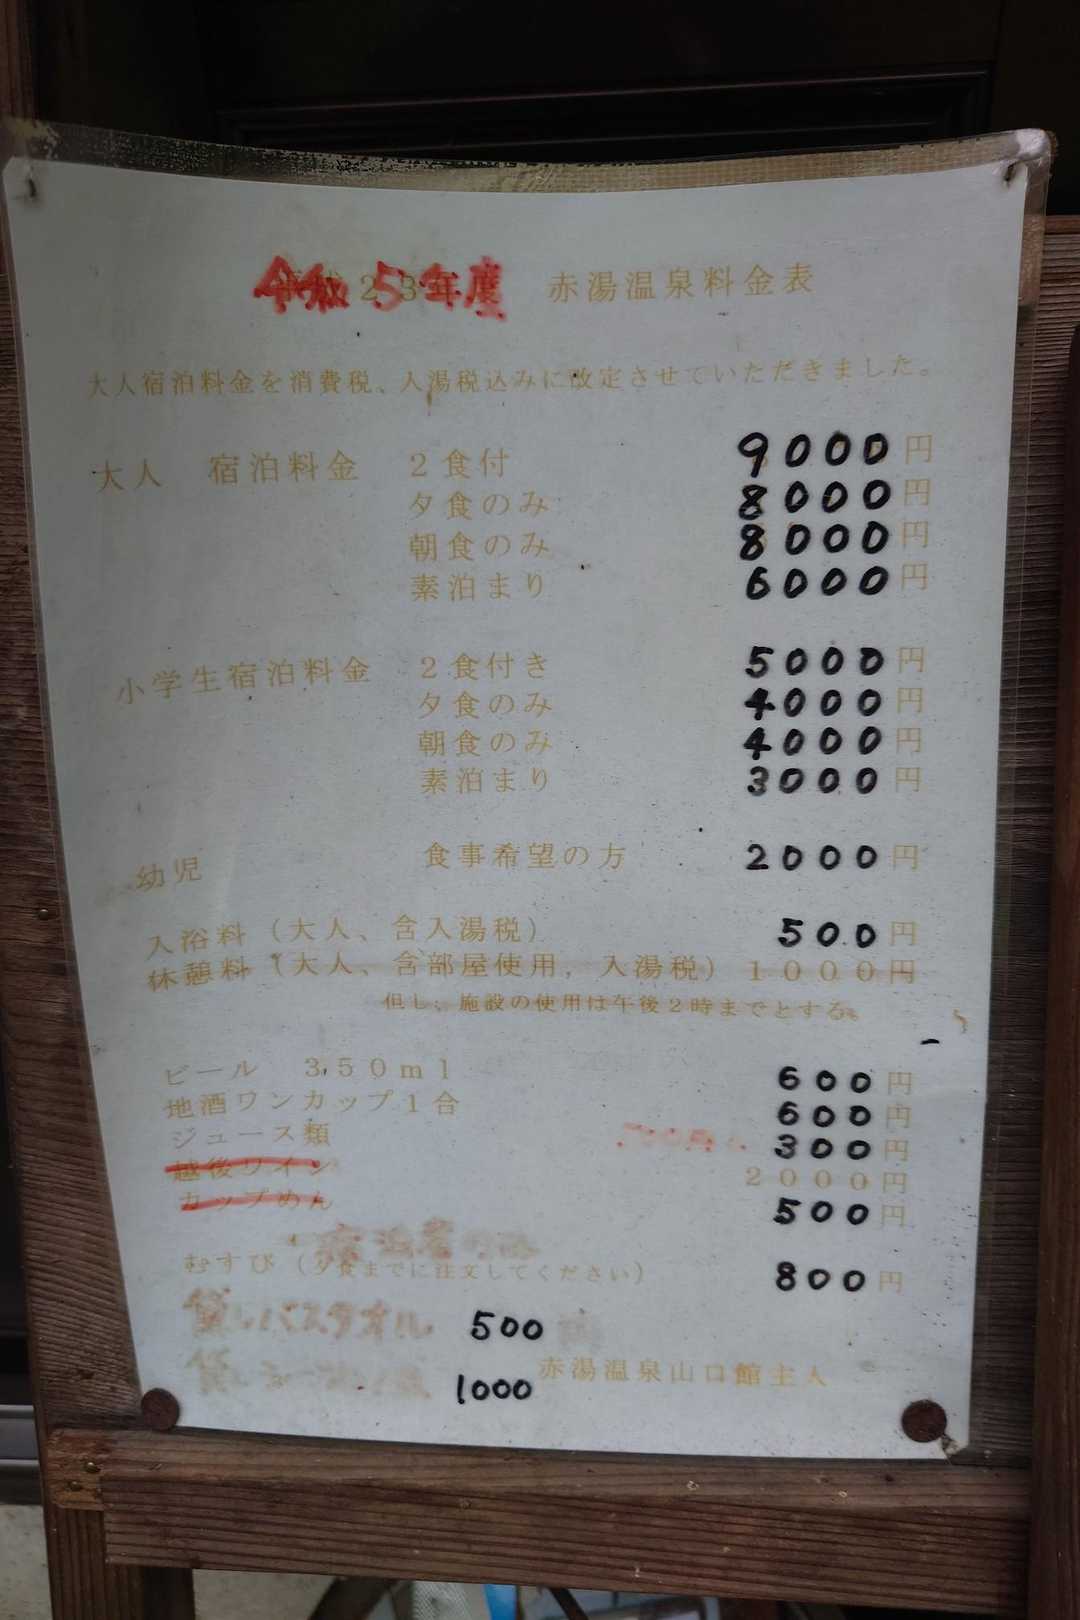 令和5年度 赤湯温泉料金表
大人宿泊料金を消費税、入湯税込みに改定させていただきました。
大人 宿泊料金 2食付 9000円
夕食のみ 8000円
朝食のみ 8000円
素泊まり 6000円
小学生宿泊料金 2食付き 5000円
夕食のみ 4000円
朝食のみ 4000円
素泊まり 3000円
幼児 食事希望の方 2000円
入浴料（大人、含入湯税） 500円
休憩料（大人、含部屋使用，入湯税） 1000円
但し、施設の使用は午後2時までとする。
ビール 350ml 600円
地酒ワンカップ1合 600円
ジュース類 300円
越後ワイン 2000円
カップめん 500円
宿泊者のみ
むすび（夕食までに注文してください） 800円
貸しバスタオル 500円
貸し 1000
赤湯温泉山口館主人